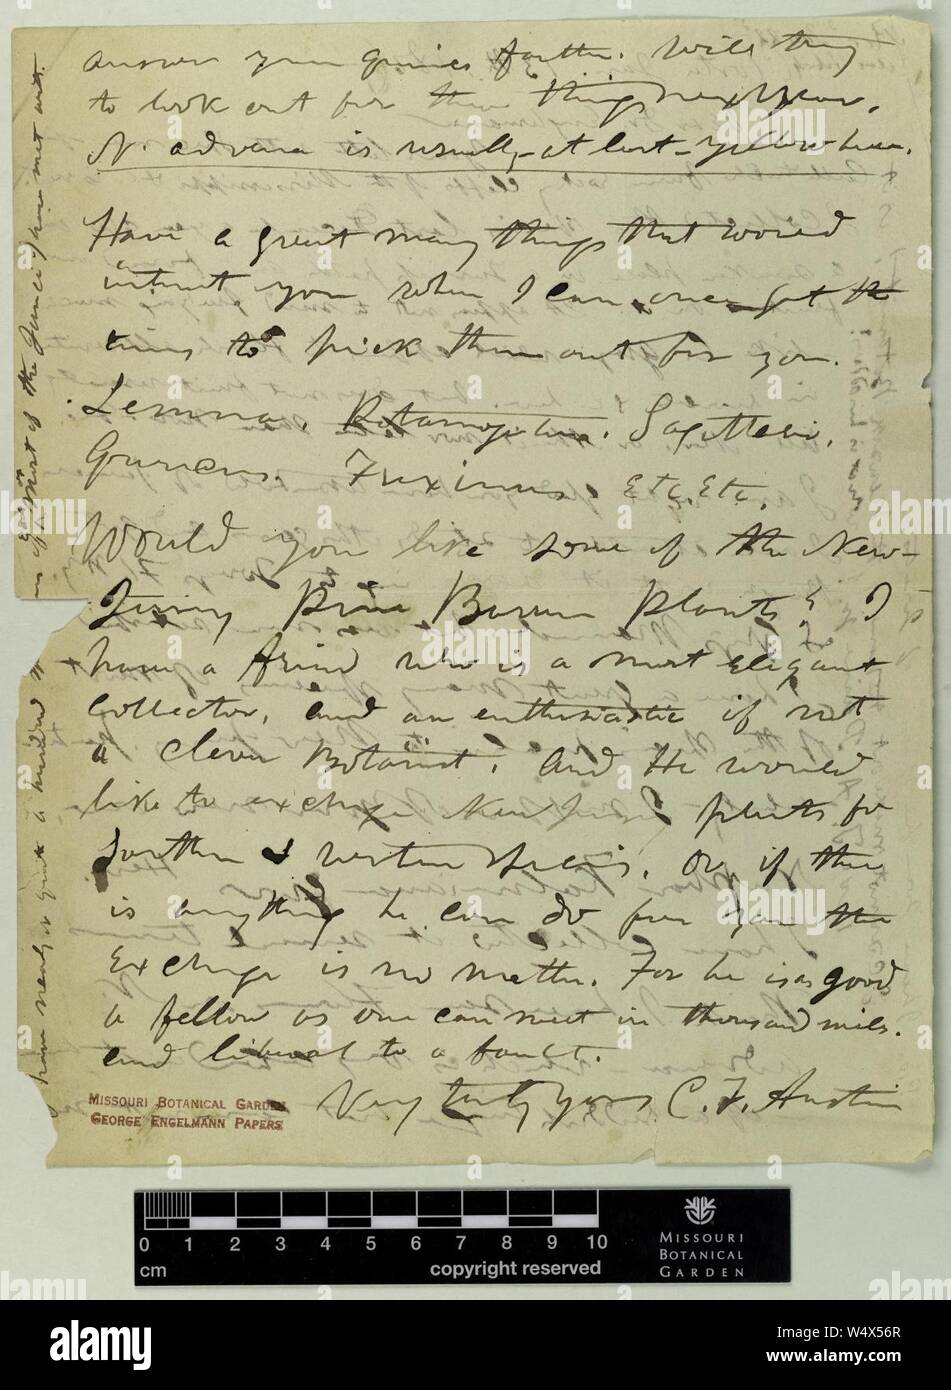 answer your queries further. Will try
to look out for these things next year.
N. advena is usually - at last - yellow here.
Have a great many things that would
interest you when I can once get the
time to pick them out for you.
Lemna, Potamogeton, Sagittaria,
Juncus. Fraxinus. Etc. Etc.
Would you like some of the New-
Jersey Pine Barren Plants? I
have a friend who is a most elegant
collector, and an enthusiastic if not
a clever Botanist. And He would
like to exchange New Jersey plants for
Southern & western species. Or, if there
is anything he can do for you the
Exchange is no matter. For he is as good
a fellow as one can meet in thousand miles.
and liberal to a fault.
Very truly yours C. F. Austin
most of the Junce I have met with.
MISSOURI BOTANICAL GARDEN
GEORGE ENGELMANN PAPERS
0 1 2 3 4 5 6 7 8 9 10
cm
copyright reserved
MISSOURI
BOTANICAL
GARDEN
alamy
Image ID: W4X56R
www.alamy.com